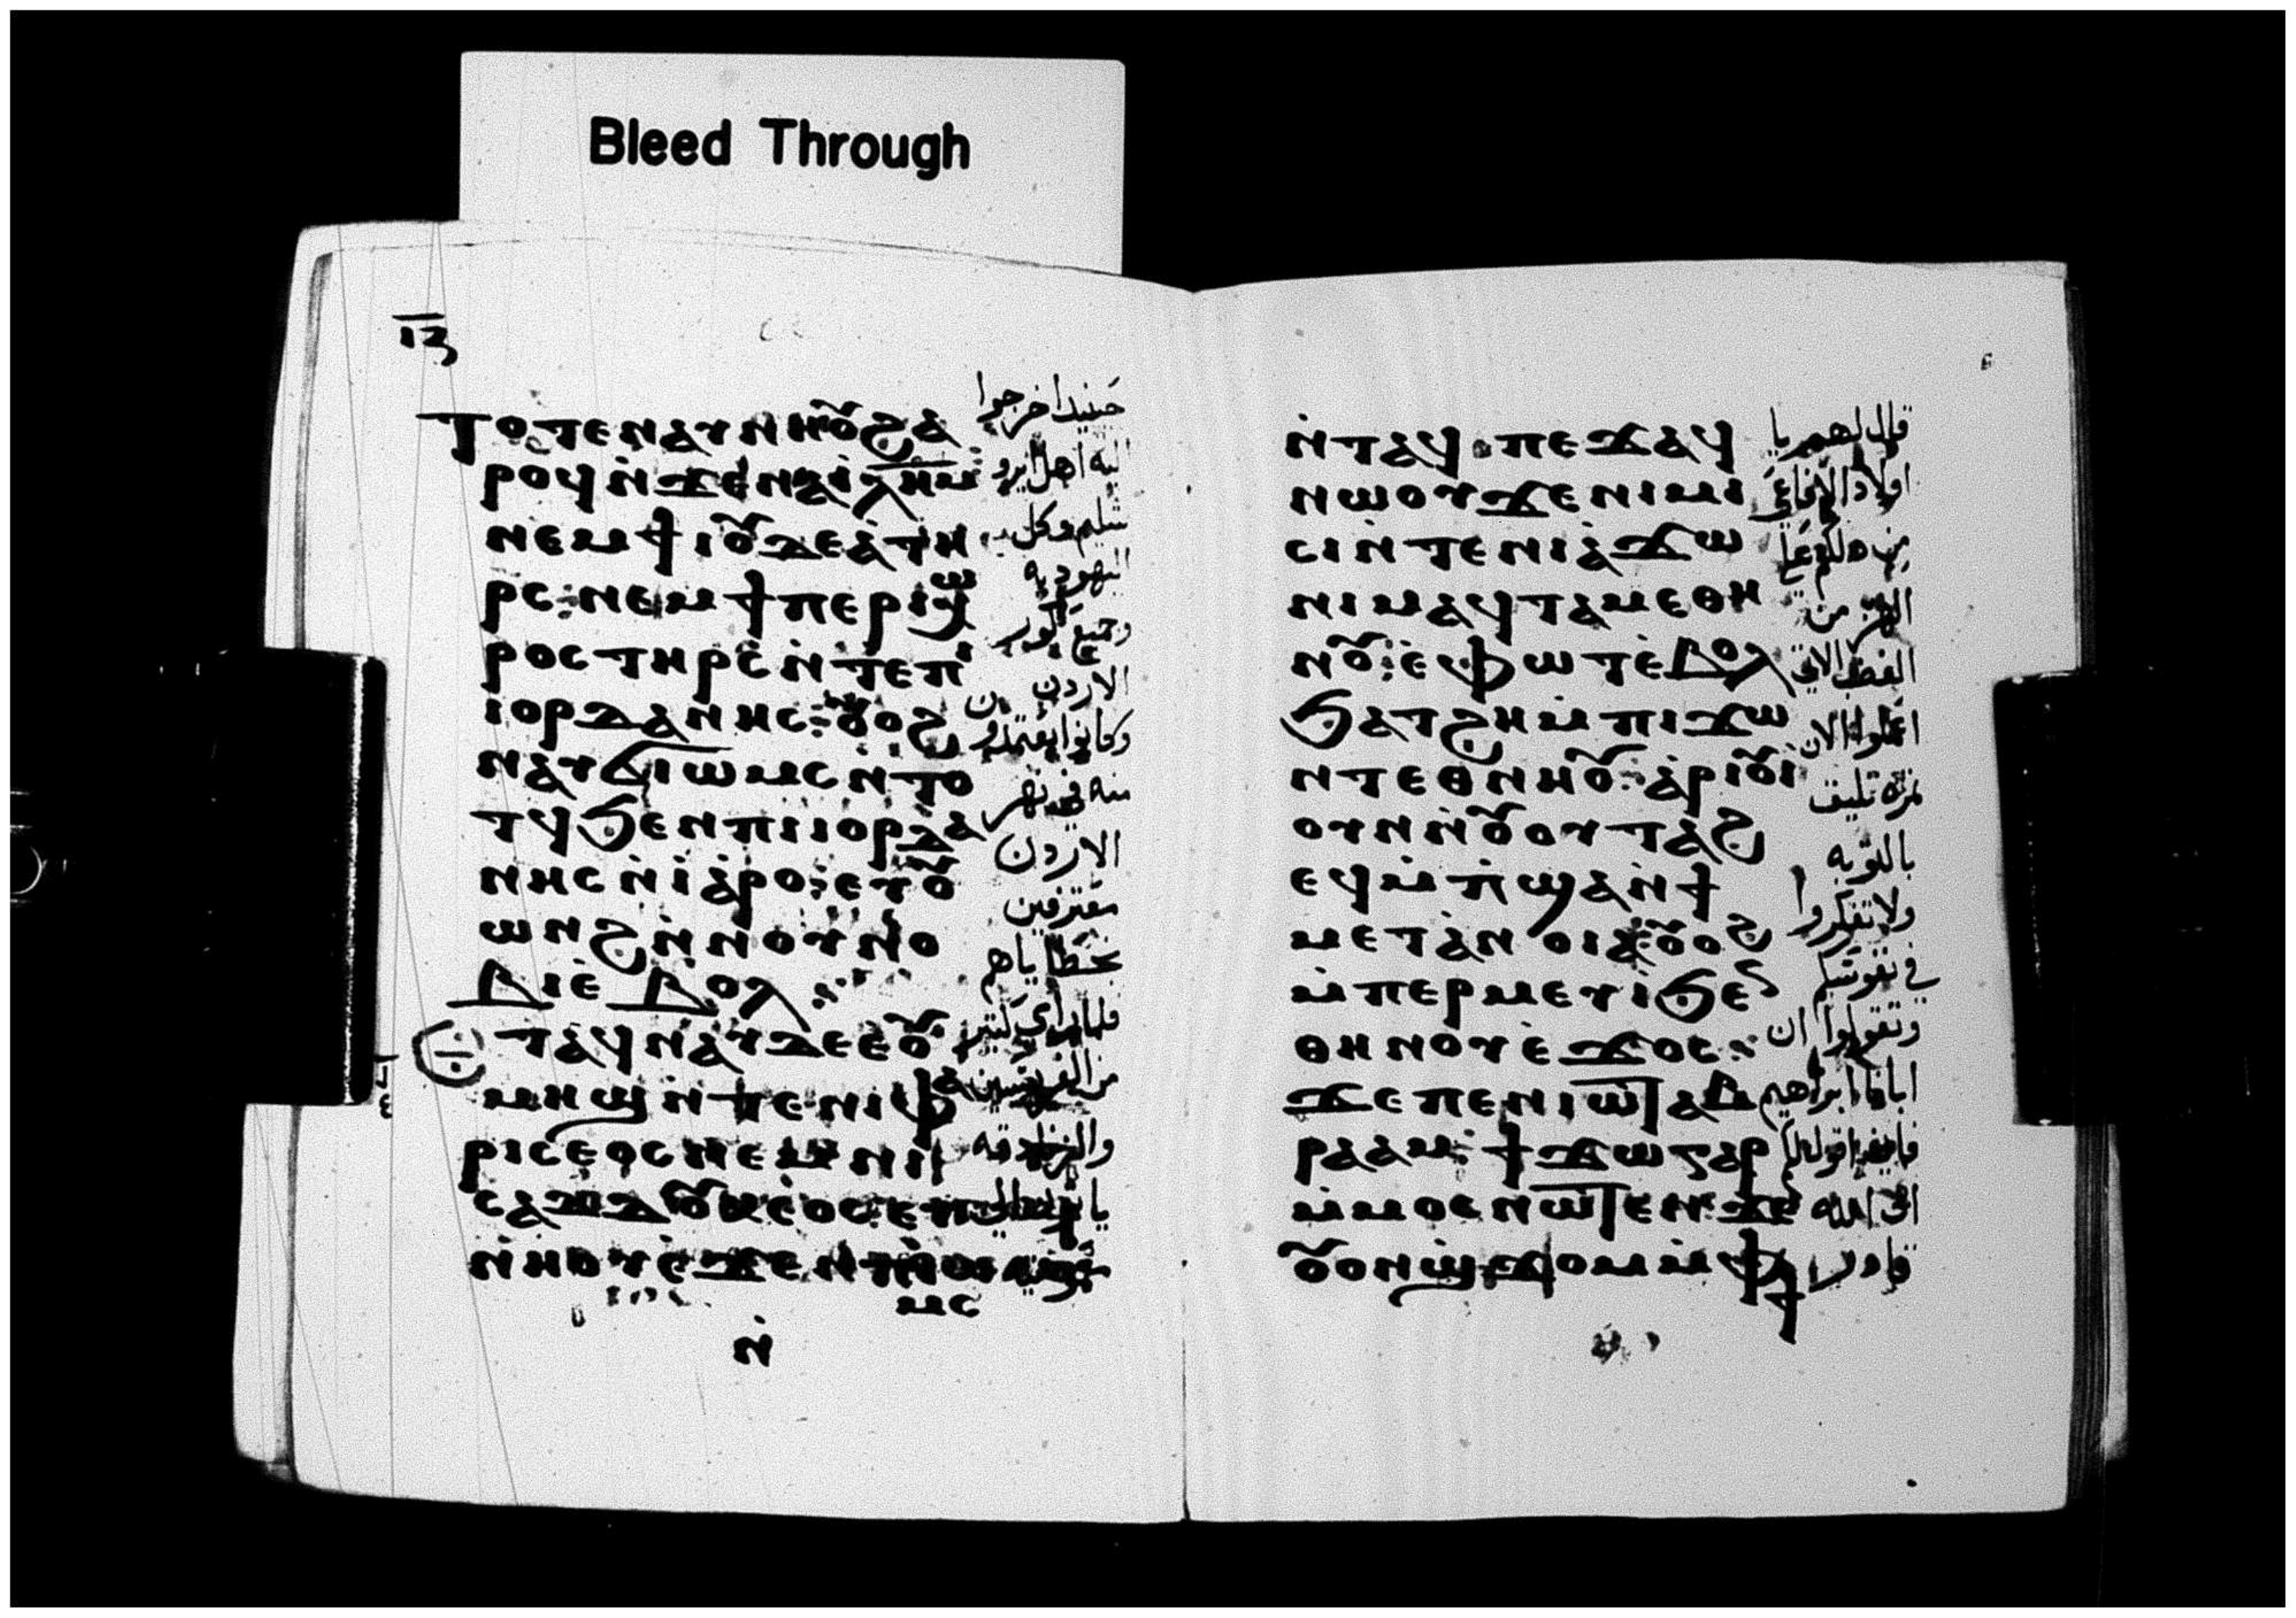 Bleed Through
ⲓⲍ
ⲧⲟⲧⲉ ⲛⲁⲩⲛⲏⲟⲩ ϩⲁ
ⲣⲟϥ ⲛ̇ϫⲉ ⲛⲁ ⲓⲗ̅ⲏ̅ⲙ̅
ⲛⲉⲙ ϯⲓⲟⲩⲇⲉⲁ ⲧⲏ
ⲣⲥ ⲛⲉⲙ ϯⲡⲉⲣⲓⲭⲱ
ⲣⲟⲥ ⲧⲏⲣⲥ ⲛ̇ⲧⲉ ⲡⲓ
ⲓⲟⲣⲇⲁⲛⲏⲥ ⲟⲩⲟϩ
ⲛⲁⲩϭⲓⲱⲙⲥ ⲛ̇ⲧⲟ
ⲧϥ ϧⲉⲛ ⲡⲓⲓⲟⲣⲇⲁ
ⲛⲏⲥ ⲛ̇ⲓⲁⲣⲟ ⲉⲩⲟⲩ
ⲱⲛϩ ⲛ̇ⲛⲟⲩⲛⲟ
ⲃⲓ ⲉ̇ⲃⲟⲗ
ⲉⲧⲁϥⲛⲁⲩ ⲇⲉ ⲉⲟⲩ
ⲙⲏϣ ⲛ̇ⲧⲉ ⲛⲓⲫⲁ
ⲣⲓⲥⲉⲟⲥ ⲛⲉⲙ ⲛⲓ
ⲥⲁⲇⲇⲟⲩⲕⲉⲟⲥ
ⲛ̇ⲏⲟⲩ ⲉ̇ϫⲉⲛ ⲡⲓⲱ
ⲙⲥ
ⲛ̇
حينيذ اخرجوا
اليه اهل ايرو
شليم وكل
اليهوديه
وجميع كور
الاردن
وكانوا يعتمدون
منه في نهر
الاردن
معترفين
بخطاياهم
فلما راى كثير
من الفريسين
والزنادقه
ⲛ̇ⲧⲁϥ ⲡⲉϫⲁϥ
ⲛⲱⲟⲩ ϫⲉ ⲛⲓⲙⲓ
ⲥⲓ ⲛ̇ⲧⲉ ⲛⲓⲁϫⲱ
ⲛⲓⲙ ⲁϥⲧⲁⲙⲉⲑⲏ
ⲛⲟⲩ ⲉ̇ⲫⲱⲧ ⲉ̇ⲃⲟⲗ
ϧⲁⲧϩⲏ ⲙ̇ⲡⲓϫⲱ
ⲛⲧ ⲉⲑⲛⲏⲟⲩ ⲁⲣⲓⲟⲩⲓ
ⲟⲩⲛ ⲛ̇ⲟⲩⲟⲩⲧⲁϩ
ⲉϥⲙ̇ⲡϣⲁ ⲛ̇ϯ
ⲙⲉⲧⲁⲛⲟⲓⲁ ⲟⲩⲟϩ
ⲙ̇ⲡⲉⲣⲙⲉⲩⲓ ϧⲉⲛ
ⲑⲏⲛⲟⲩ ⲉ̇ϫⲟⲥ
ϫⲉ ⲡⲉⲛⲓⲱⲧ ⲁⲃ
ⲣⲁⲁⲙ ϯϫⲱ ⲅⲁⲣ
ⲙ̇ⲙⲟⲥ ⲛⲱⲧⲉⲛ ϫⲉ
ⲟⲩⲟⲛ ϣϫⲟⲙ ⲙ̇ⲫϯ
قال لهم يا
اولاد الافاعى
من دلكم على
الهرب من
الغضب الاتى
اعملوا الان
ثمرة تليق
بالتوبه
ولا تفكروا
في نفوسكم
وتقولوا ان
ابانا ابراهيم
فاننى اقول لكم
ان الله
قادر